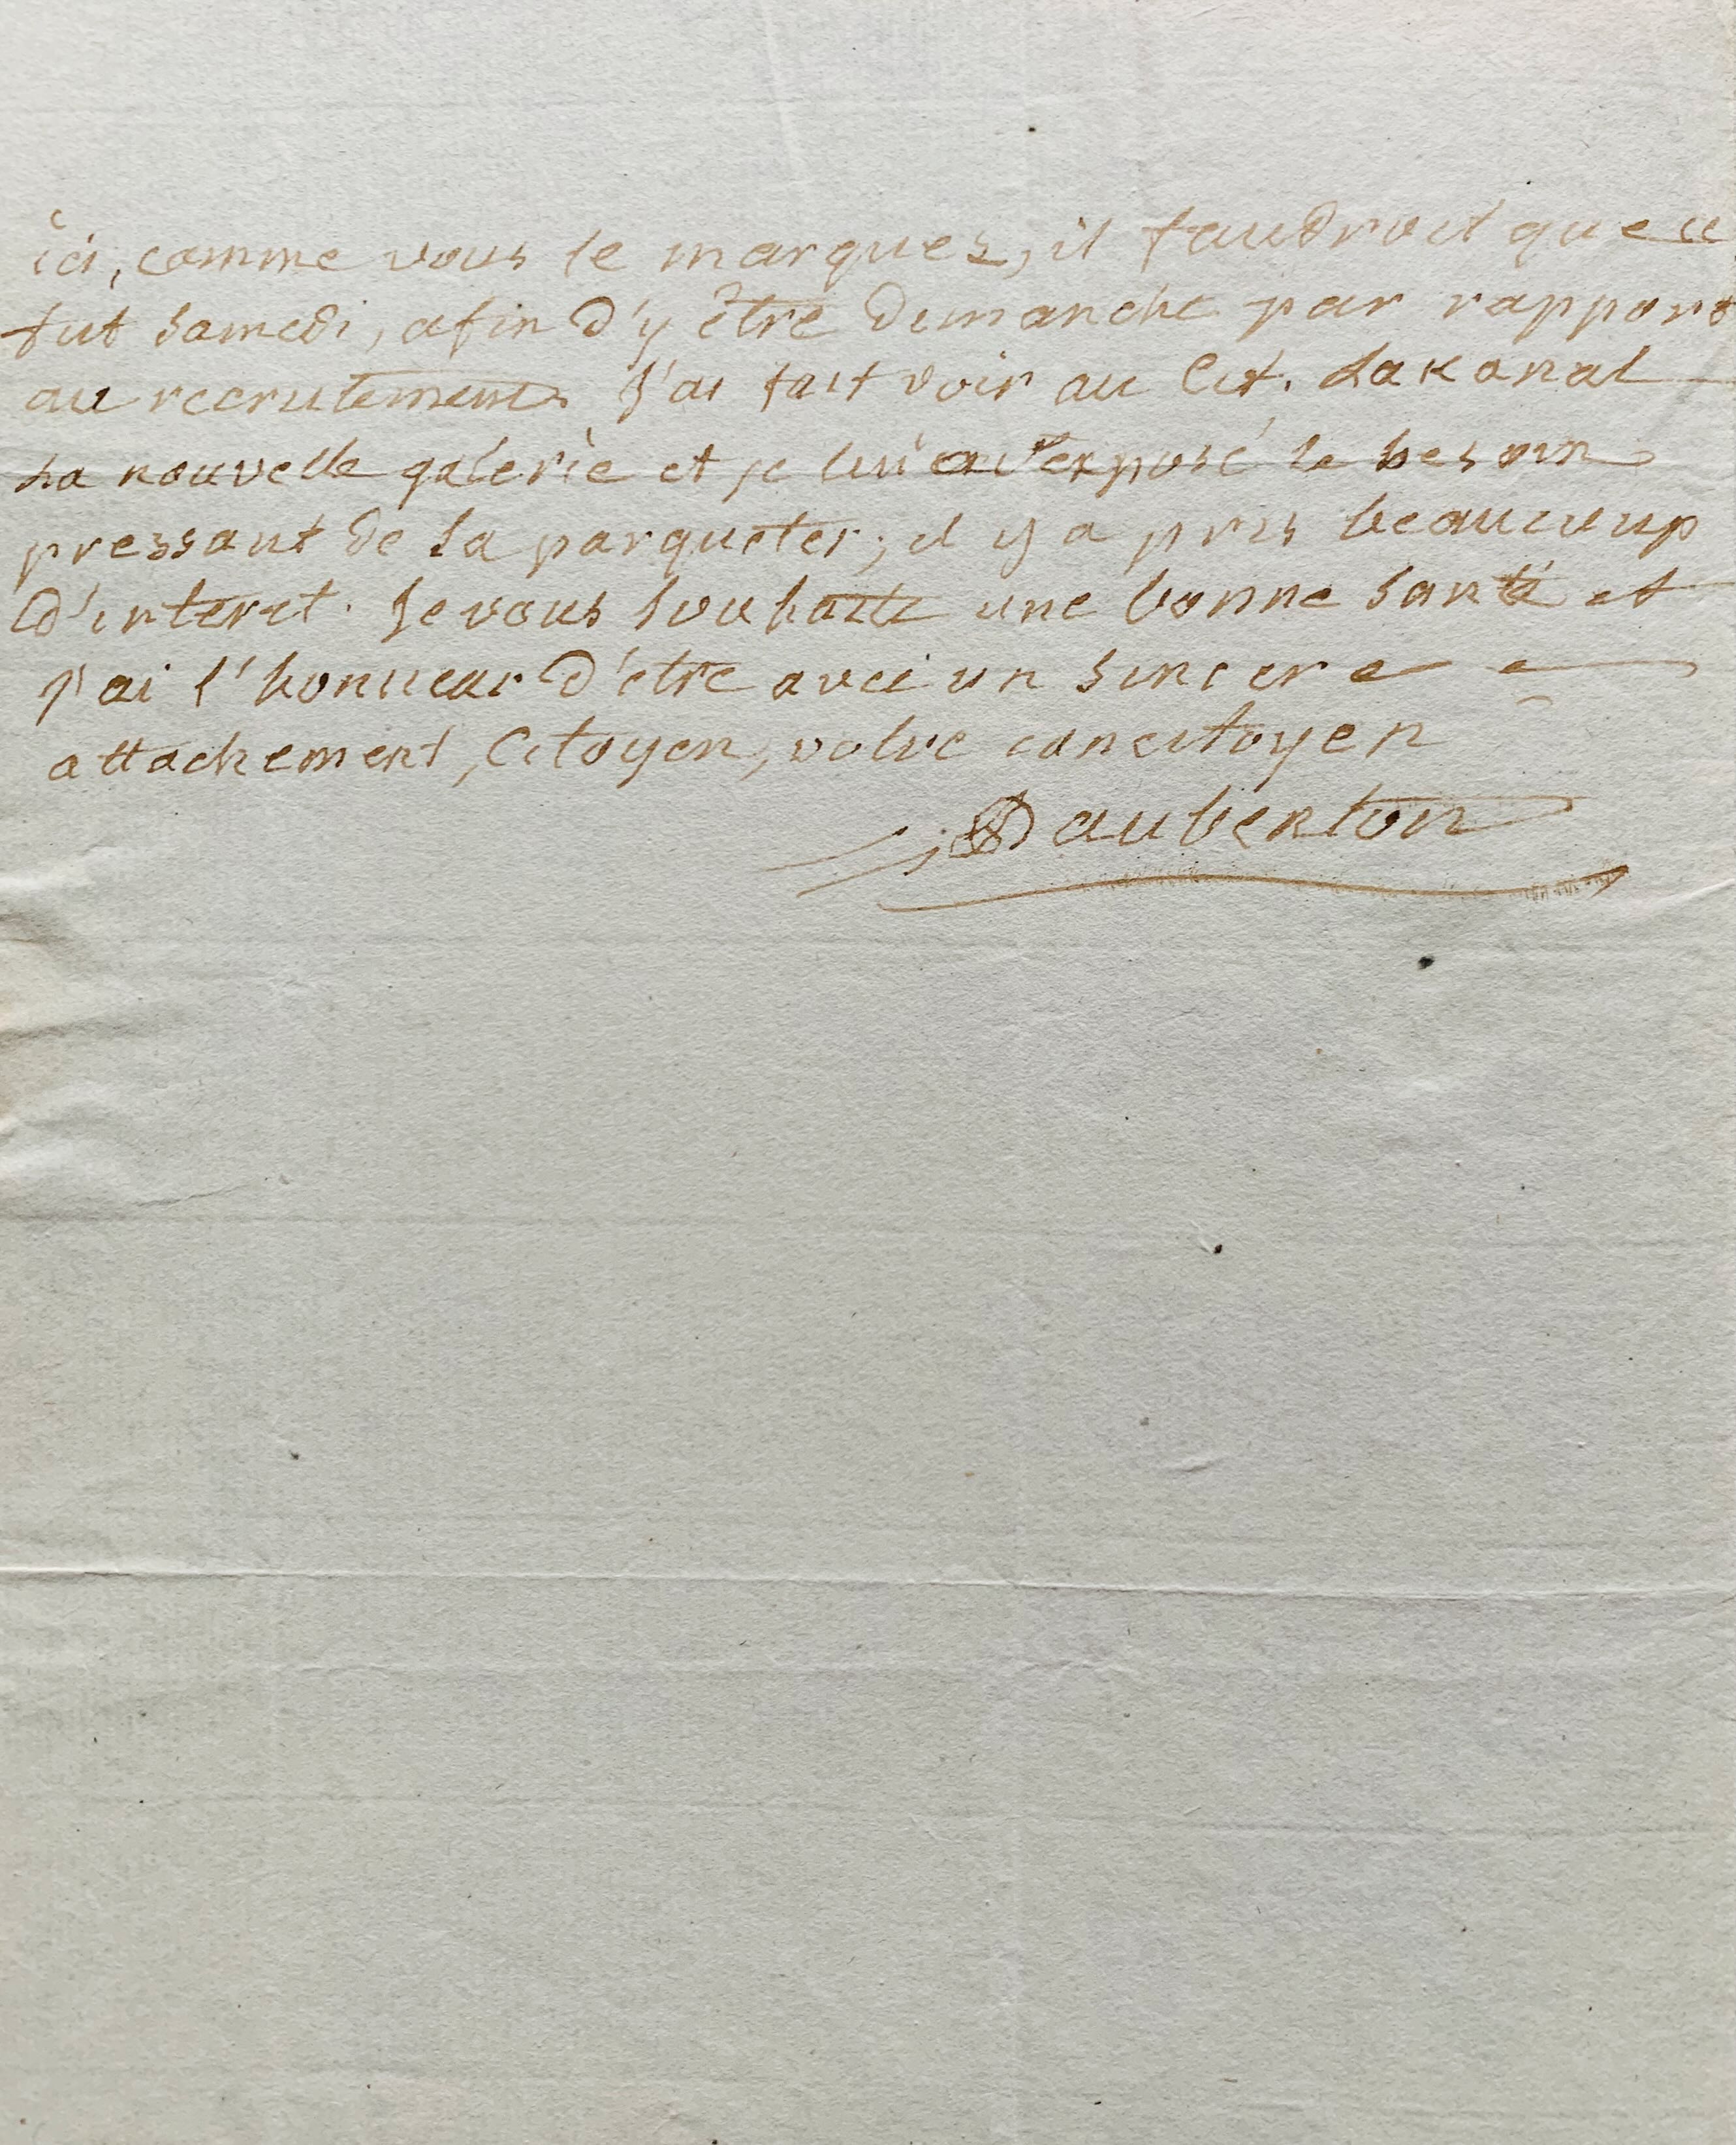 ici, comme vous le marques, il faudroit que ce
fut samedi, afin d'y être dimanche par rapport
au recrutement. J'ai fait voir au Cit. Lakanal
La nouvelle galerie et je lui ai exposé le besoin
pressant de la parqueter; il y a pris beaucoup
d'interet. Je vous souhaite une bonne santé et
j'ai l'honneur d'etre avec un sincere
attachement, Citoyen, votre concitoyen
Daubenton